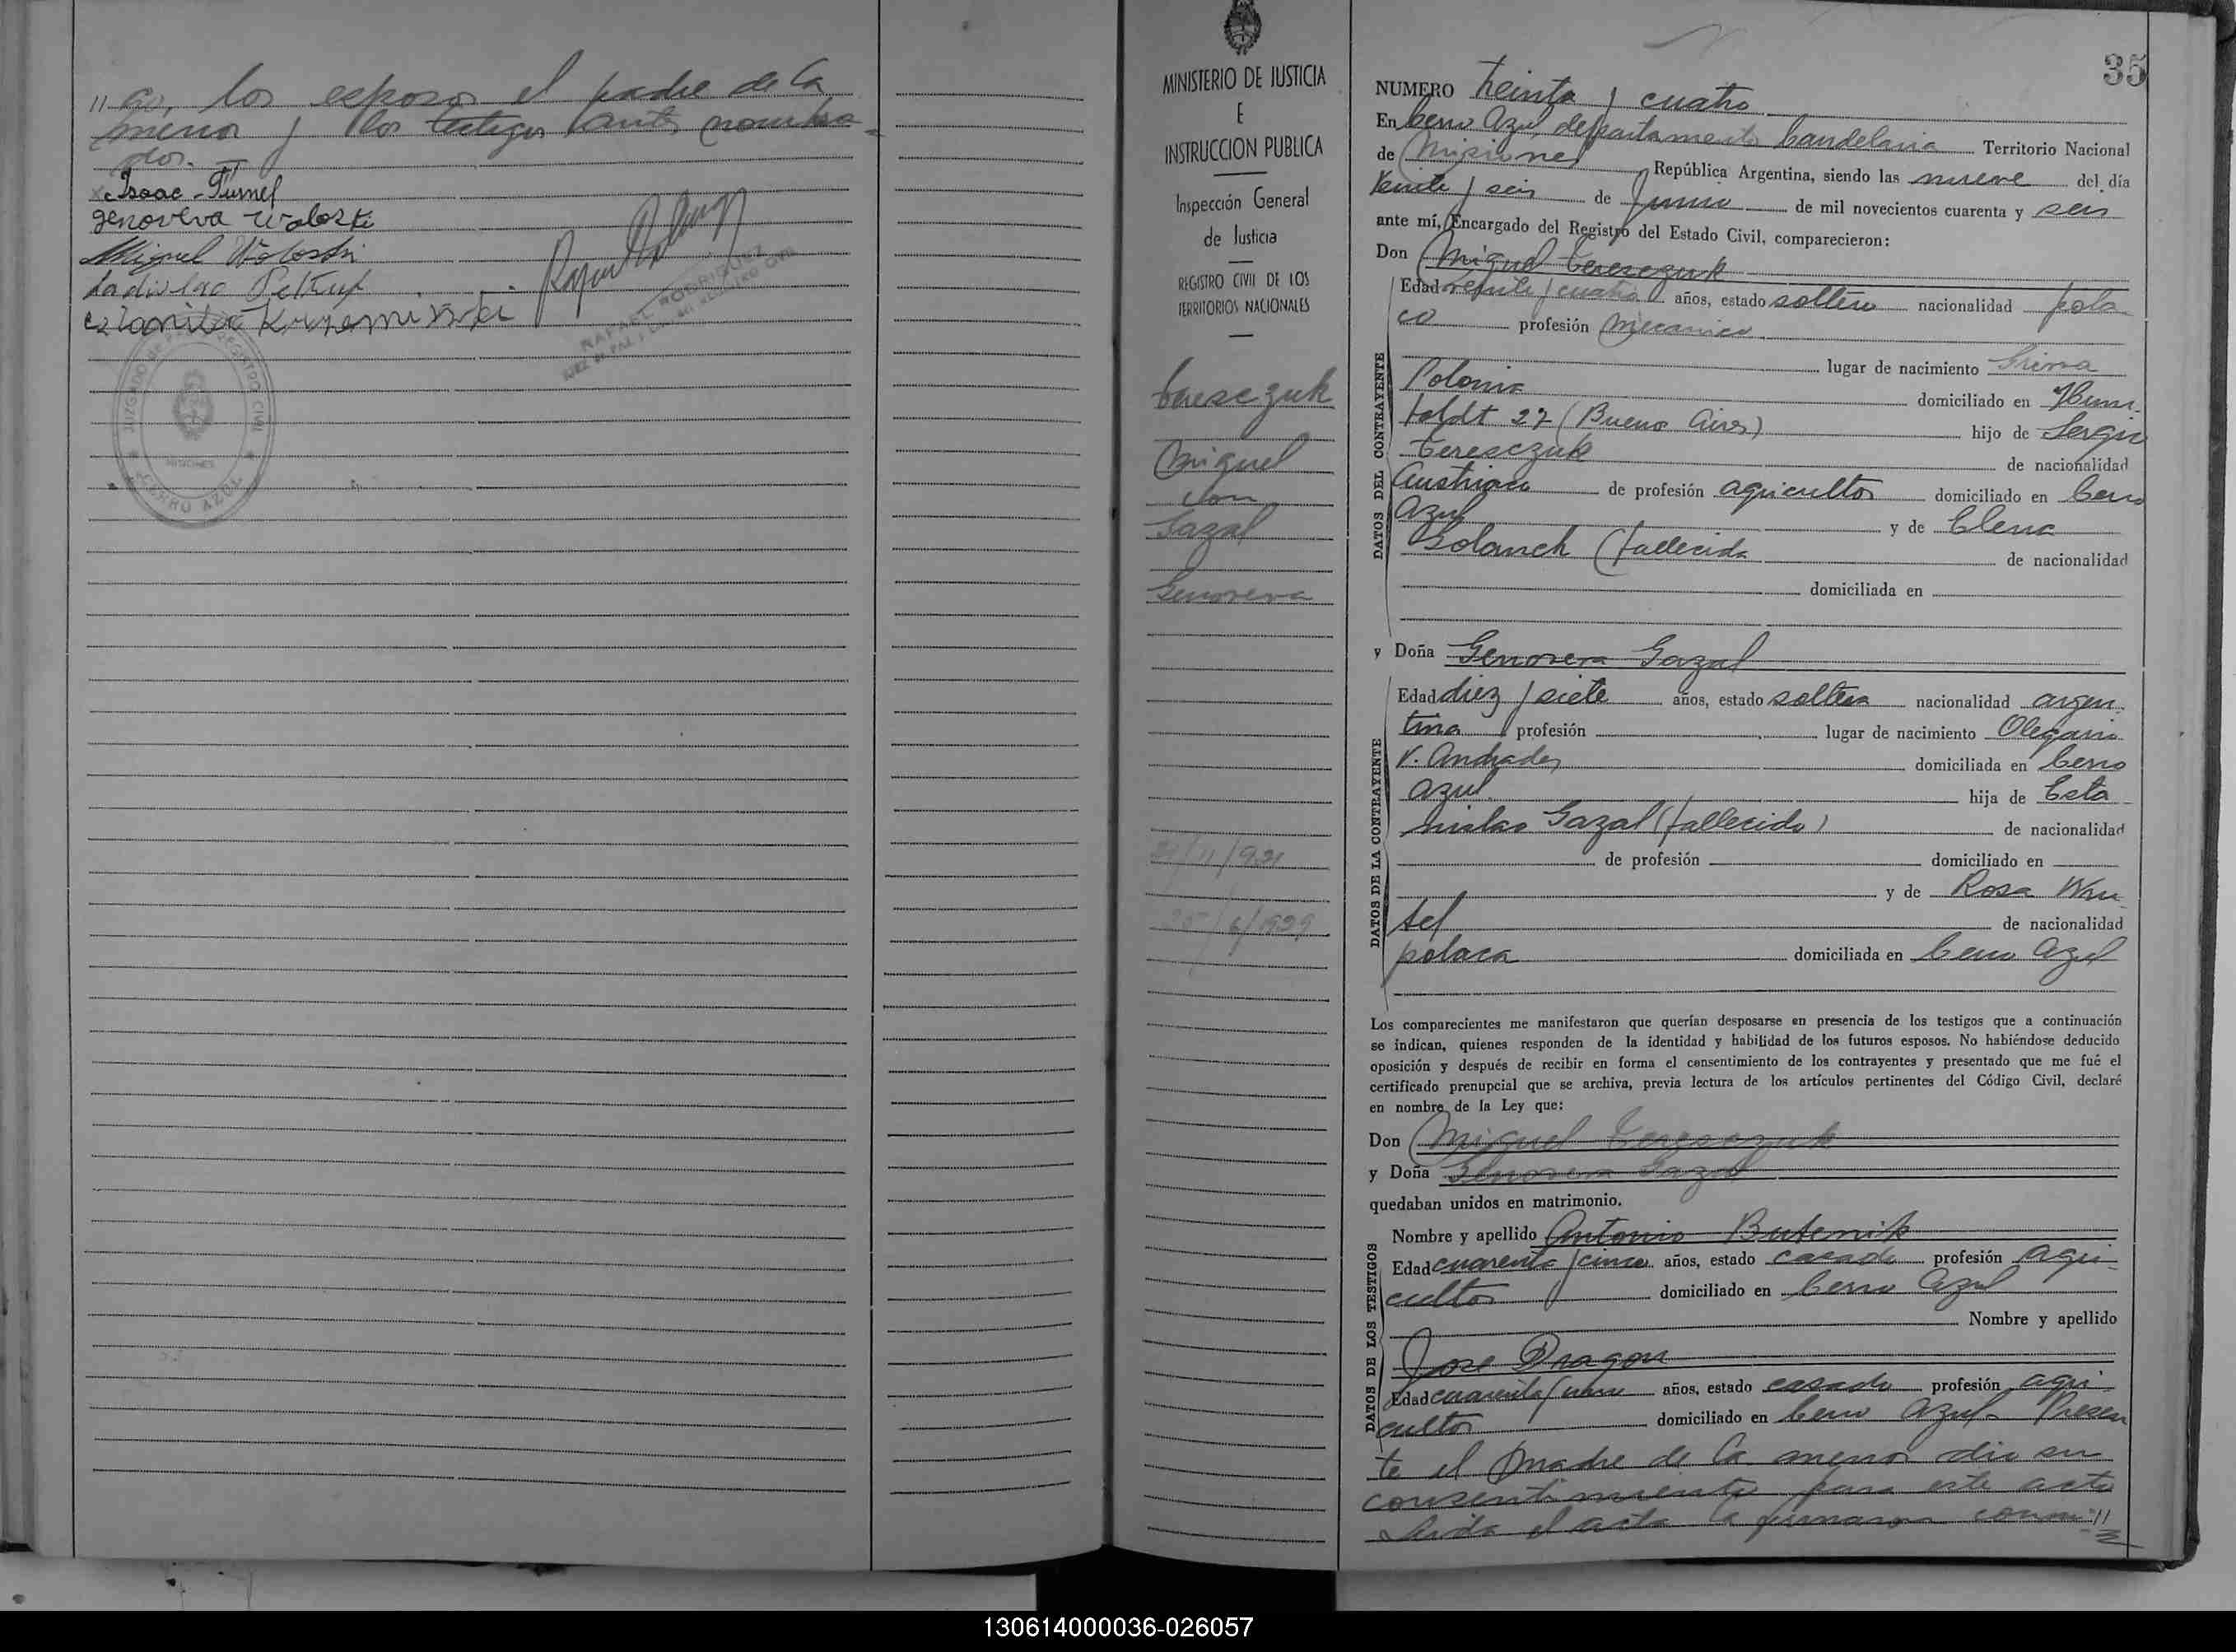 go, los esposos el padre de la
menor y los testigos antes nombra=
dos.
Isaac Fusnel
genoveva Woloszki
Miguel Woloszki
Ladislao Petkuf
RAFAEL RODRIGUEZ
JUEZ DE PAZ
JUZGADO DE PAZ Y REGISTRO CIVIL
MISIONES
CERRO AZUL
MINISTERIO DE JUSTICIA
E
INSTRUCCION PUBLICA
Inspección General
de Justicia
REGISTRO CIVIL DE LOS
TERRITORIOS NACIONALES
Teresczuk
Miguel
con
Gazal
Genoveva
/11/921
25/6/1929
35
NUMERO Treinta y cuatro
En Cerro Azul, departamento Candelaria Territorio Nacional
de Misiones República Argentina, siendo las nueve del día
Veinte y seis de Junio de mil novecientos cuarenta y seis
ante mí, Encargado del Registro del Estado Civil, comparecieron:
Don Miguel Teresczuk
DATOS DEL CONTRAYENTE
Edad veinte y cuatro años, estado soltero nacionalidad pola
co profesión mecanico
lugar de nacimiento
Polonia domiciliado en Hum
boldt 22 (Buenos Aires) hijo de Sergio
Teresczuk de nacionalidad
Austriaco de profesión agricultor domiciliado en Cerro
Azul y de Elena
Solanch (fallecida de nacionalidad
domiciliada en
y Doña Genoveva Gazal
DATOS DE LA CONTRAYENTE
Edad diez y siete años, estado soltera nacionalidad argen
tina profesión lugar de nacimiento Olegario
V. Andrades domiciliada en Cerro
Azul hija de Esta
nislao Gazal (fallecido) de nacionalidad
de profesión domiciliado en
y de Rosa Win
tel de nacionalidad
polaca domiciliada en Cerro Azul
Los comparecientes me manifestaron que querían desposarse en presencia de los testigos que a continuación
se indican, quienes responden de la identidad y habilidad de los futuros esposos. No habiéndose deducido
oposición y después de recibir en forma el consentimiento de los contrayentes y presentado que me fué el
certificado prenupcial que se archiva, previa lectura de los artículos pertinentes del Código Civil, declaré
en nombre de la Ley que:
Don Miguel Teresczuk
y Doña Genoveva Gazal
quedaban unidos en matrimonio.
DATOS DE LOS TESTIGOS
Nombre y apellido Antonio Butenik
Edad cuarenta y cinco años, estado casado profesión agri
cultor domiciliado en Cerro Azul
Nombre y apellido
Jose Dragon
Edad cuarenta y años, estado casado profesión agri
cultor domiciliado en Cerro Azul. Presen
te el madre de la menor dio su
consentimiento para este acto
Leida el acta la firmaron conmi-//
130614000036-026057